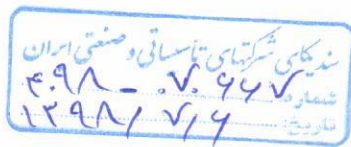 سندیکای شرکتهای تأسیساتی و صنعتی ایران
شماره: ۴۰۹۸ – ۷۰۶۶۷
تاریخ: ۱۳۹۸/۷/۶